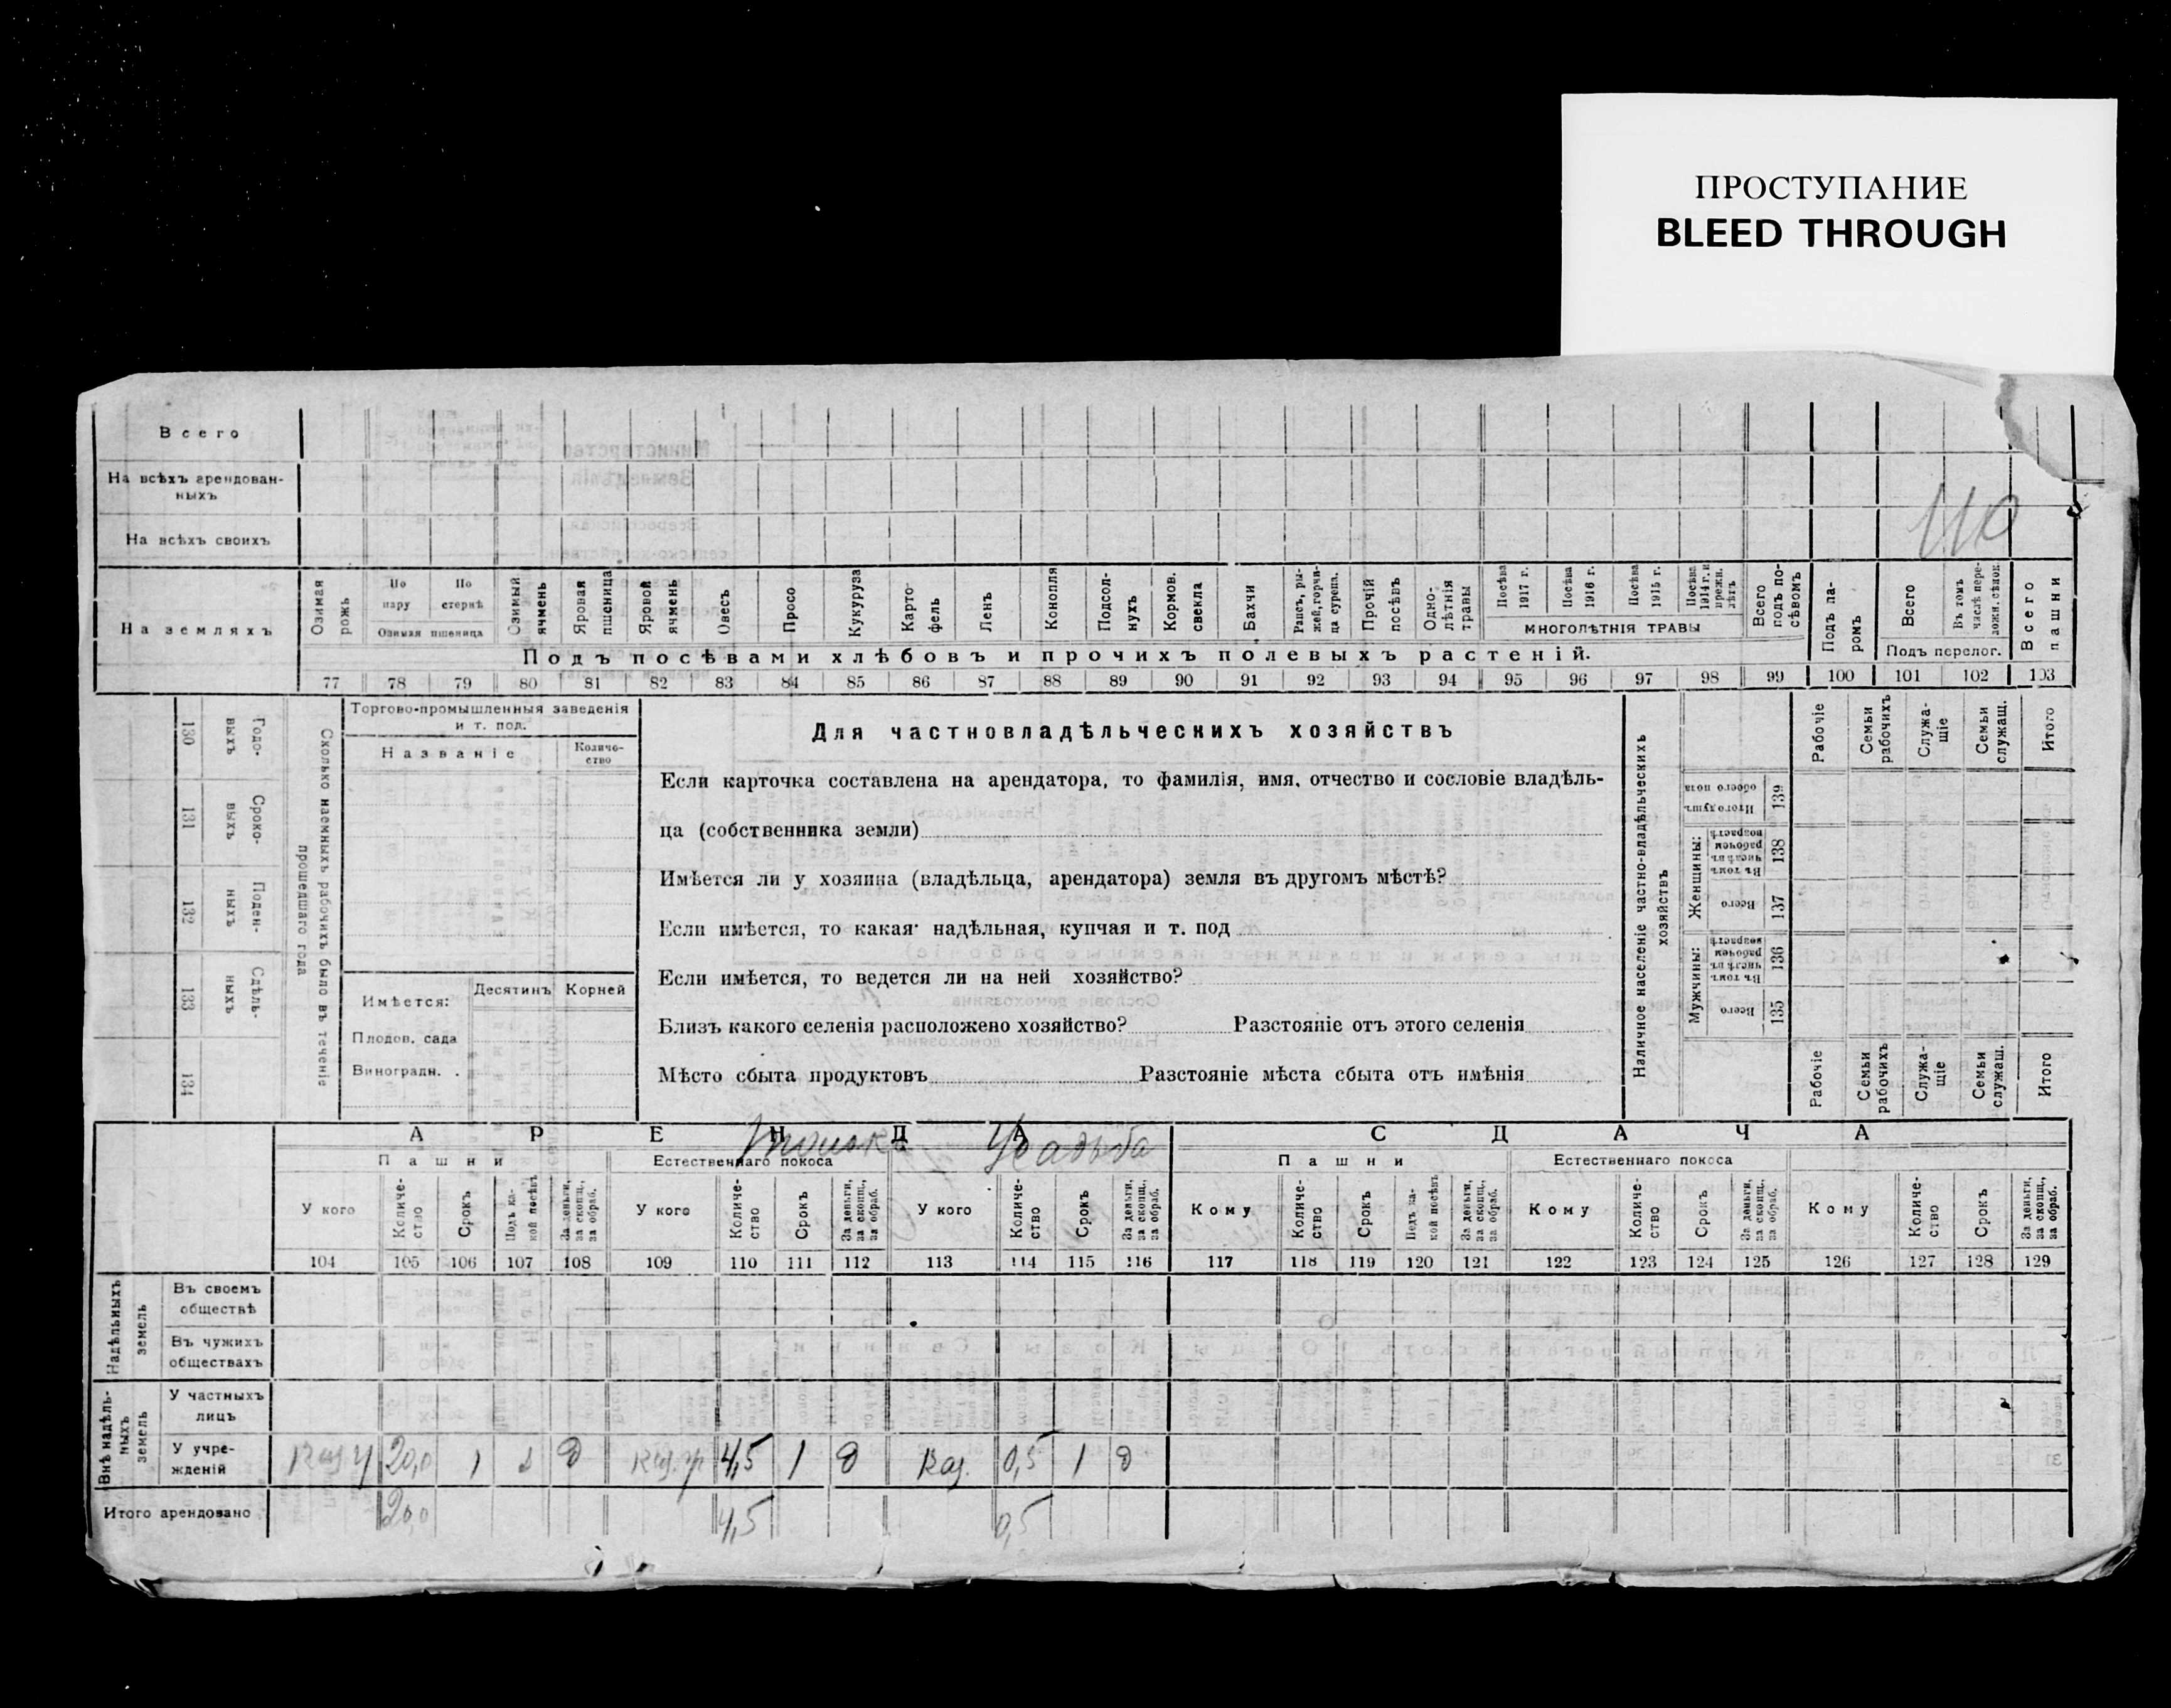 ПРОСТУПАНИЕ
BLEED THROUGH
Всего
На всѣхъ арендован-
ныхъ
На всѣхъ своихъ
110
На земляхъ
Озимая рожь
По пару
По стернѣ
Озимая пшеница
Озимый ячмень
Яровая пшеница
Яровой ячмень
Овесъ
Просо
Кукуруза
Карто-
фель
Ленъ
Конопля
Подсол-
нухъ
Кормов. свекла
Бахчи
Рапсъ, ры-
жей, горчи-
ца сурепа.
Прочій посѣвъ
Одно-
лѣтнія травы
Посѣва 1917 г.
Посѣва 1916 г.
Посѣва 1915 г.
Посѣва 1914 г. и прежн. лѣтъ
МНОГОЛѢТНІЯ ТРАВЫ
Всего подъ по-
сѣвомъ
Подъ па-
ромъ
Всего
Въ томъ числѣ пере-
ложн. сѣнок.
Подъ перелог.
Всего пашни
Подъ посѣвами хлѣбовъ и прочихъ полевыхъ растеній.
77 78 79 80 81 82 83 84 85 86 87 88 89 90 91 92 93 94 95 96 97 98 99 100 101 102 103
130 Годо-
выхъ
131 Сроко-
выхъ
132 Поден-
ныхъ
133 Сдѣль-
ныхъ
134
Сколько наемныхъ рабочихъ было въ теченіе
прошедшаго года
Торгово-промышленныя заведенія
и т. под.
Названіе
Количе-
ство
Имѣется:
Десятинъ
Корней
Плодов. сада
Виноградн. .
Для частновладѣльческихъ хозяйствъ
Если карточка составлена на арендатора, то фамилія, имя, отчество и сословіе владѣль-
ца (собственника земли)
Имѣется ли у хозяина (владѣльца, арендатора) земля въ другомъ мѣстѣ?
Если имѣется, то какая: надѣльная, купчая и т. под
Если имѣется, то ведется ли на ней хозяйство?
Близъ какого селенія расположено хозяйство? Разстояніе отъ этого селенія
Мѣсто сбыта продуктовъ Разстояніе мѣста сбыта отъ имѣнія
Наличное населеніе частно-владѣльческихъ
хозяйствъ
Рабочіе
Семьи рабочихъ
Служа-
щіе
Семьи служащ.
Итого
Итого душъ обоего пола
139
Женщины:
Въ томъ числѣ въ рабочемъ возрастѣ
138
Всего
137
Мужчины:
Въ томъ числѣ въ рабочемъ возрастѣ
136
Всего
135
Рабочіе
Семьи рабочихъ
Служа-
щіе
Семьи служащ.
Итого
АРЕНДА
СДАЧА
Усадьба
Пашни
Естественнаго покоса
Пашни
Естественнаго покоса
У кого
Количе-
ство
Срокъ
Подъ ка-
кой посѣвъ
За деньги, за скопщ., за обраб.
У кого
Количе-
ство
Срокъ
За деньги, за скопщ., за обраб.
У кого
Количе-
ство
Срокъ
За деньги, за скопщ., за обраб.
Кому
Количе-
ство
Срокъ
Подъ ка-
кой посѣвъ
За деньги, за скопщ., за обраб.
Кому
Количе-
ство
Срокъ
За деньги, за скопщ., за обраб.
Кому
Количе-
ство
Срокъ
За деньги, за скопщ., за обраб.
104 105 106 107 108 109 110 111 112 113 114 115 116 117 118 119 120 121 122 123 124 125 126 127 128 129
Надѣльныхъ
земель
Въ своемъ
обществѣ
Въ чужихъ
обществахъ
Внѣ надѣль-
ныхъ
земель
У частныхъ
лицъ
У учре-
жденій
20,0 1 д Каз. 4,5 1 д Каз. 0,5 1 д
Итого арендовано
20,0 4,5 0,5